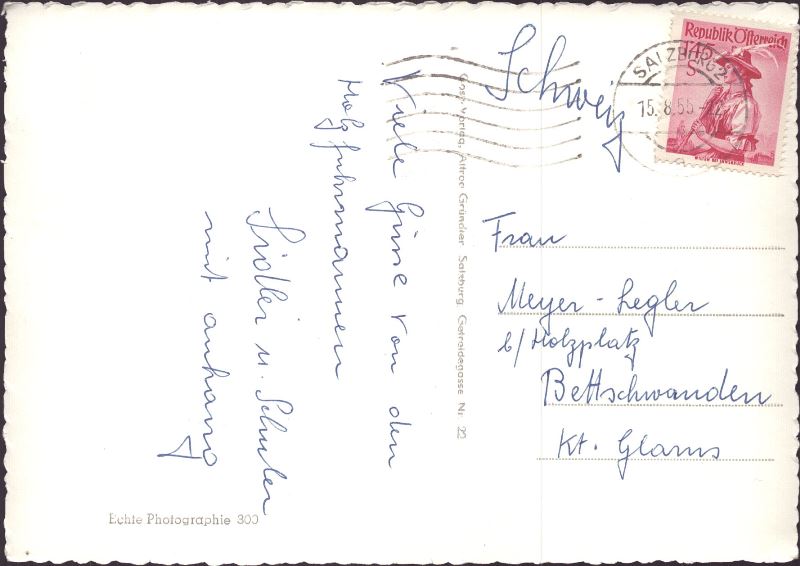 Viele Grüsse von den
Holzfuhrmannen
Sidler u. Schuler
mit anhang
Schweiz
Republik Österreich
1.45
S
SALZBURG 2
15.8.55
Frau
Meyer-Legler
b/Holzplatz
Bettschwanden
Kt. Glarus
Gründler Salzburg Getreidegasse Nr. 22
Echte Photographie 300